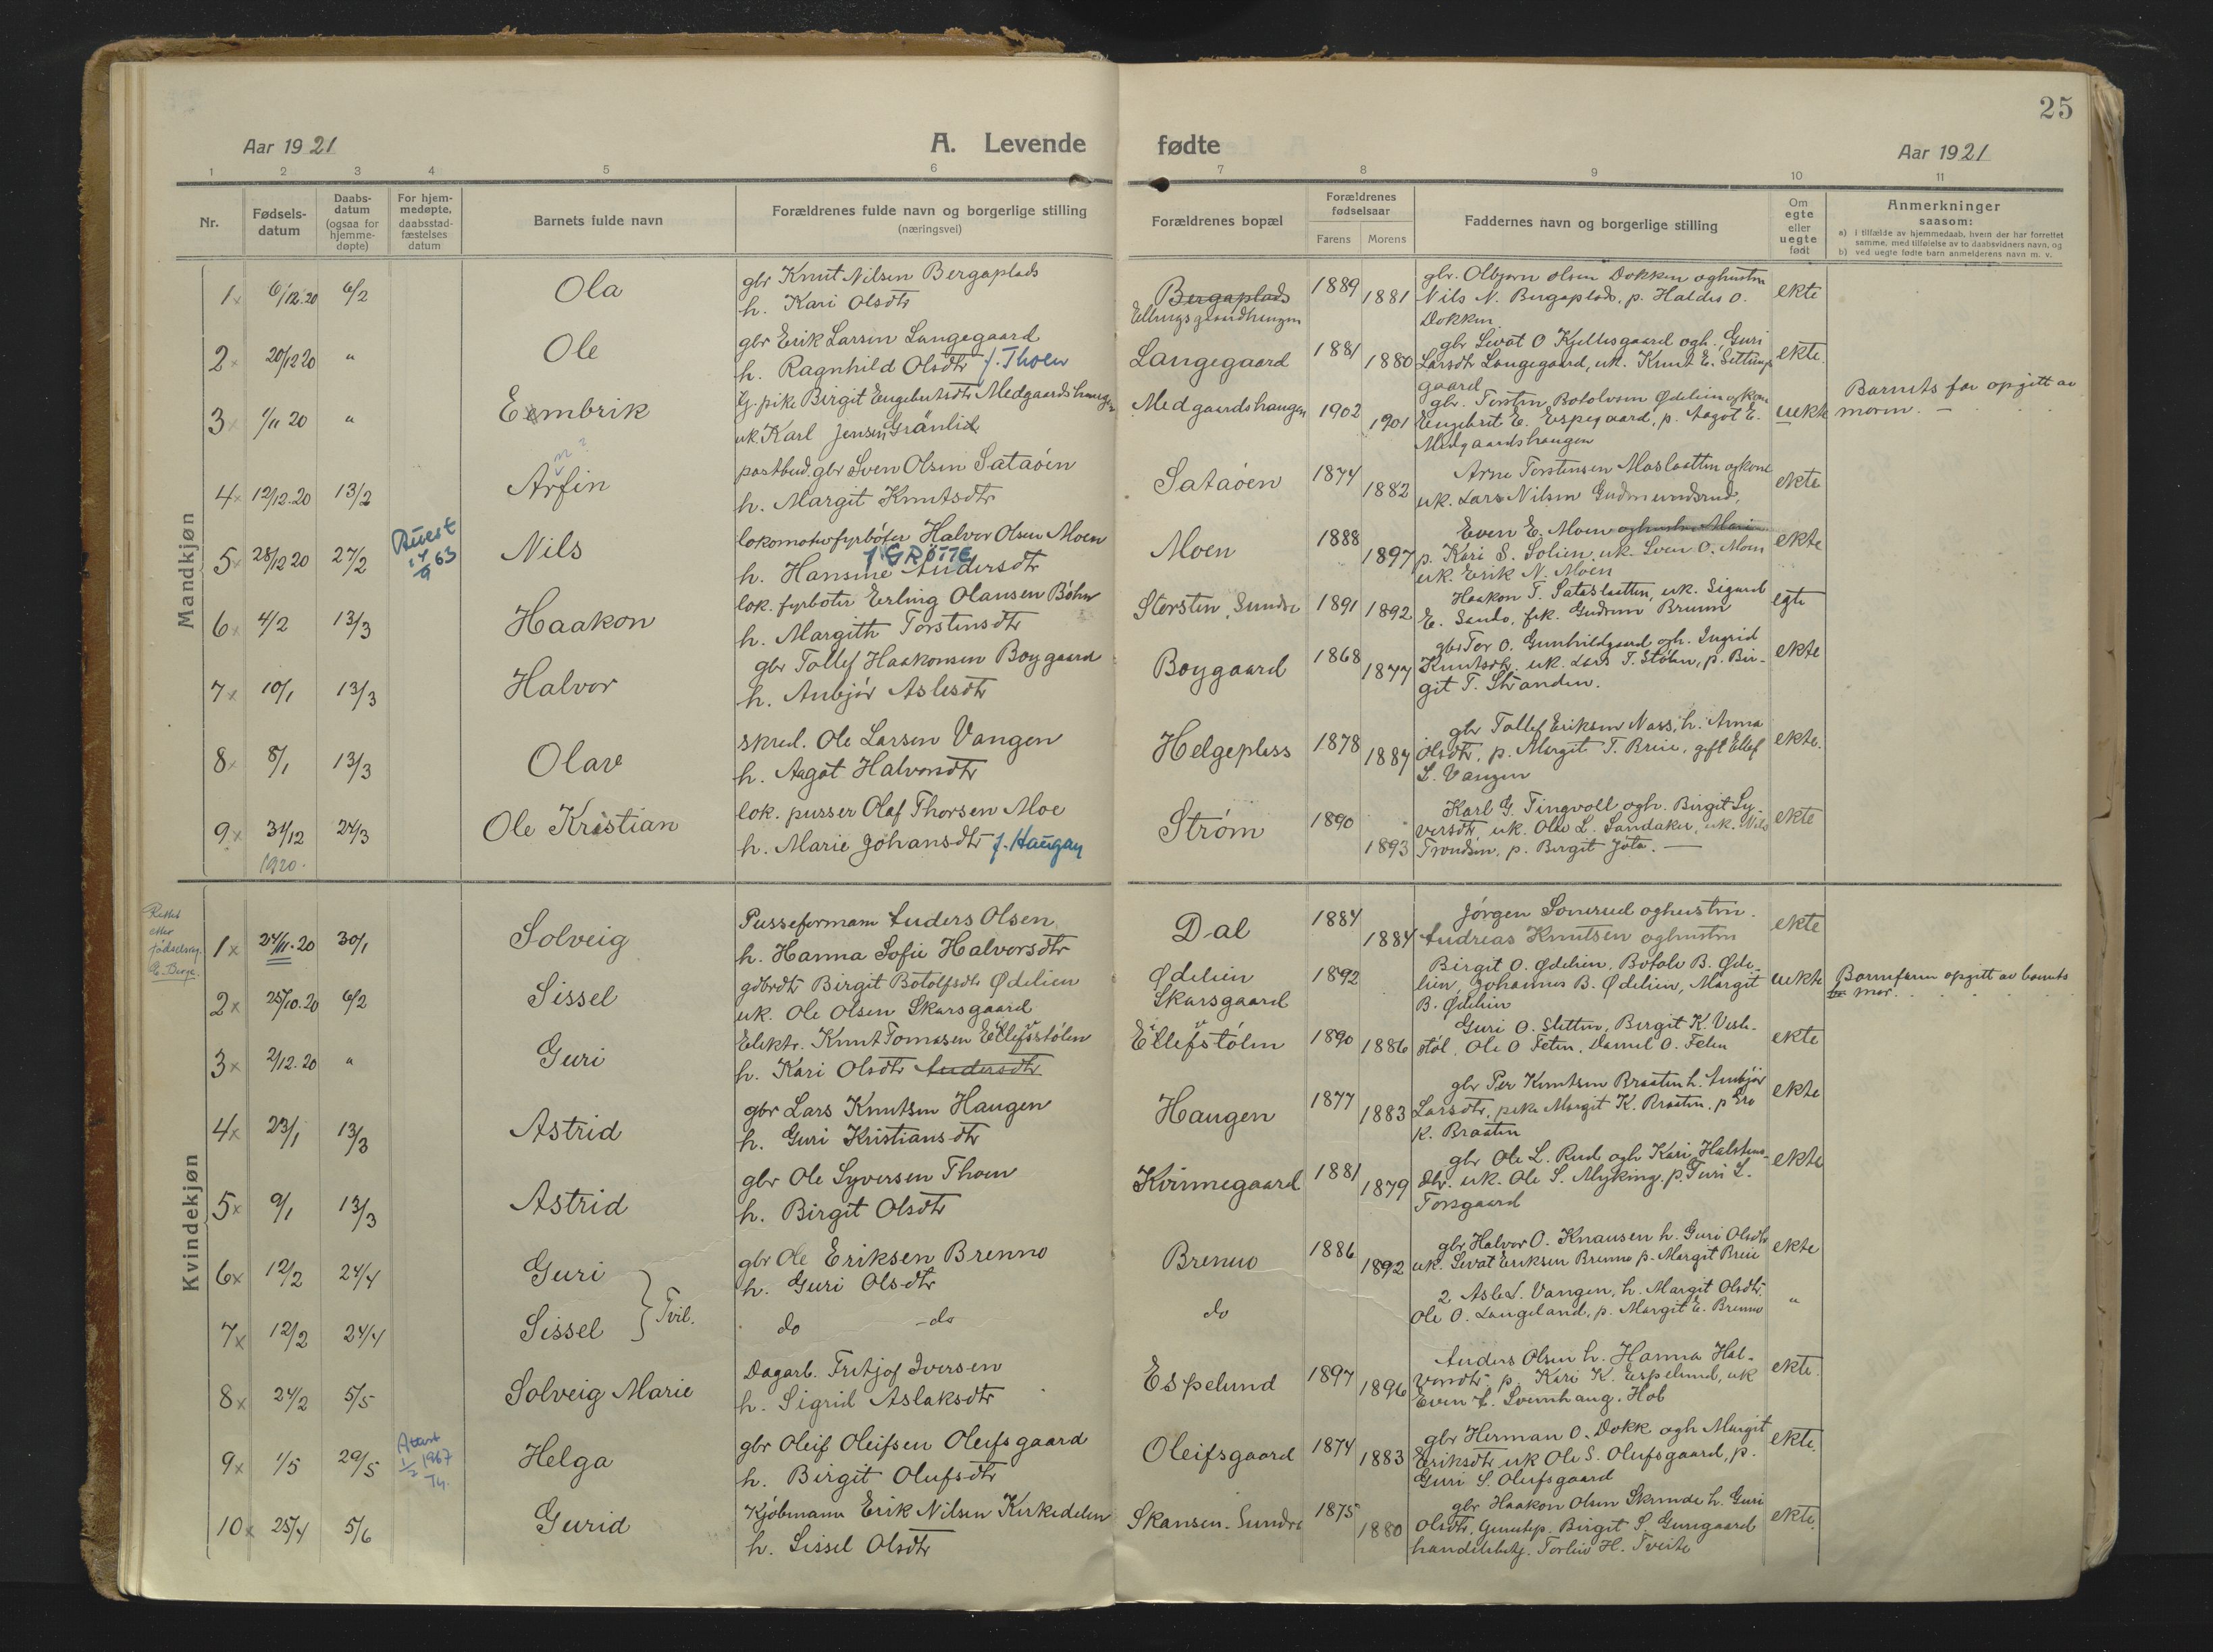 25
Aar 1921
A. Levende fødte
Aar 1921
1 2 3 4 5 6 7 8 9 10 11
Nr.
Fødsels-
datum
Daabs-
datum
(ogsaa for
hjemme-
døpte)
For hjem-
medøpte,
daabsstad-
fæstelses
datum
Barnets fulde navn
Forældrenes fulde navn og borgerlige stilling
(næringsvei)
Forældrenes bopæl
Forældrenes
fødselsaar
Farens Morens
Faddernes navn og borgerlige stilling
Om
egte
eller
uegte
født
Anmerkninger
saasom:
a) i tilfælde av hjemmedaab, hvem der har forrettet
samme, med tilføielse av to daabsvidners navn, og
b) ved uegte fødte barn anmelderens navn m. v.
Mandkjøn
1x 6/12.20 6/2 Ola
gbr Knut Nilsen Bergaplads
h. Kari Olsdtr
Bergaplads
1889 1881
gbr. Olbjørn Olsen Dokken oghustru
Nils N. Bergaplads, p. Haldis O.
Dokken
ekte
2x 20/12 20 " Ole
gbr Erik Larsen Langegaard
h. Ragnhild Olsdtr f. Thoen
Langegaard
1881 1880
gbr Sevat O Kjellesgaard ogh., Guri
Larsdtr Langegaard, uk. Knut E. Settungs
gaard
ekte.
3x 1/11 20 " Embrik
tj. pike Birgit Engebretsdtr Medgaardshaugen
uk. Karl Jensen Gränlid
Medgaardshaugen
1902 1901
gbr. Torsten Botolvsen Ødelien og kone
Engebrit E. Espegaard, p. Aagot E.
Medgaardshaugen
uekte
Barnets far opgitt av
moren. —
4x 12/12.20 13/2 Arfin
m ?
postbud. gbr Sven Olsen Sataøen
h. Margit Knutsdtr
Sataøen
1874 1882
Arne Torstensen Maslaatten og kone
uk. Lars Nilsen Gudmundsrud,
ekte
5x 28/12 20 27/2 63 Nils
lokomotivfyrbøter Halvor Olsen Moen
f GRØTTE
h. Hansine Andersdtr
Moen
1888 1897
Even E. Moen oghustru Mari
p. Kari S. Solien, uk. Sven O. Moen
uk. Erik N. Moen
ekte
6x 4/2 13/3 Haakon
lok. fyrbøter Erling Olausen Bøhn
h. Margith Torstensdtr
Storsten, Sundre
1891 1892
Haakon T. Sataslaatten, uk. Sigurd
E. Sando, frk. Gudrun Bruun
egte
7x 10/1 13/3 Halvor
gbr Tollef Haakonsen Boygaard
h. Anbjør Aslesdtr
Boygaard
1868 1877
gbr Tor O. Gunhildgaard ogh. Ingrid
Knutsdtr. uk. Lars T. Stølen, p. Bir-
git T. Stranden.
ekte
8x 8/1 13/3 Olav
skred. Ole Larsen Vangen
h. Aagot Halvorsdtr
Helgepless
1878 1887
gbr Tollef Eriksen Næss, h. Anna
Olsdtr, p. Margit T. Breie, gift Ellef
L. Vangen
ekte.
9x 31/12 1920. 24/3 Ole Kristian
lok. pusser Olaf Thorsen Moe
h. Marie Johansdtr f. Haugan
Strøm
1890 1893
Karl G. Tingvoll ogh. Birgit Sy-
versdtr, uk. Olav L. Sandaker, uk. Nils
Trondsen, p. Birgit Jøta. —
ekte
Kvindekjøn
Rettet
etter
fødselsreg.
E. Berge.
1x 24/11.20 30/1 Solveig
Pusseformann Anders Olsen
h. Hanna Sofie Halvorsdtr
Dal
1884 1884
Jørgen Sonerud oghustru.
Andreas Knutsen oghustru
ekte
2x 25/10.20 6/2 Sissel
gdbrdtr Birgit Botolfsdtr Ødelien
uk. Ole Olsen Skarsgaard
Ødelien
Skarsgaard
1892
Birgit O. Ødelien, Botolv B. Øde-
lien, Johannes B. Ødelien, Margit
B. Ødelien
uekte
Barnefaren opgitt av barnets
mor.
3x 2/12.20 " Guri
Elektr. Knut Tomasen Ellefsstølen
h. Kari Olsdtr Andersdtr
Ellefstølen
1890 1886
Guri O. Sletten, Birgit K. Vesle-
støl, Ole O Feten, Daniel O. Feten
ekte
4x 23/1 13/3 Astrid
gbr Lars Knutsen Haugen
h. Guri Kristiansdtr
Haugen
1877 1883
gbr Per Knutsen Braaten h. Anbjør
Larsdtr, pike Margit K. Braaten, p Gro
K. Braaten
ekte
5x 9/1 13/3 Astrid
gbr Ole Syversen Thoen
h. Birgit Olsdtr
Kvinnegaard
1881 1879
gbr Ole L. Rud ogh Kari Halstens-
dtr. uk. Ole S. Myking, p. Turi L.
Torsgaard
ekte
6x 12/2 24/4 Guri
gbr Ole Eriksen Brenno
h. Guri Olsdtr
Brenno
1886 1892
gbr Halvor O. Knausen h. Guri Olsdtr
uk. Sevat Eriksen Brenno p. Margit Breie
ekte
7x 12/2 24/4 Sissel } Tvil.
do – do
do
2 Asle L. Vangen, h. Margit Olsdtr.
Ole O. Langeland, p. Margit E. Brenno
"
8x 24/2 5/5 Solveig Marie
Dagarb. Fritjof Iversen
h. Sigrid Aslaksdtr
Espelund
1897 1896
Anders Olsen h. Hanna Hal-
vorsdtr. p. Kari K. Espelund, uk
Even T. Svenhaug. Hol
ekte.
9x 1/5 29/5 Attest 1/2 1967 Helga
gbr Oleif Oleifsen Oleifsgaard
h. Birgit Olufsdtr
Oleifsgaard
1874 1883
gbr Herman O. Dokk ogh Margit
Eriksdtr uk Ole S. Olufsgaard, p.
Guri S. Olufsgaard
ekte.
10x 25/4 5/6 Gurid
Kjøbmann Erik Nilsen Kirkedelen
h. Sissel Olsdtr
Skansen. Sundre
1875 1880
gbr Haakon Olsen Skrinde h. Guri
Olsdtr, Birgit S. Gurigaard
handelsbetj. Torleiv H. Tveito
ekte.